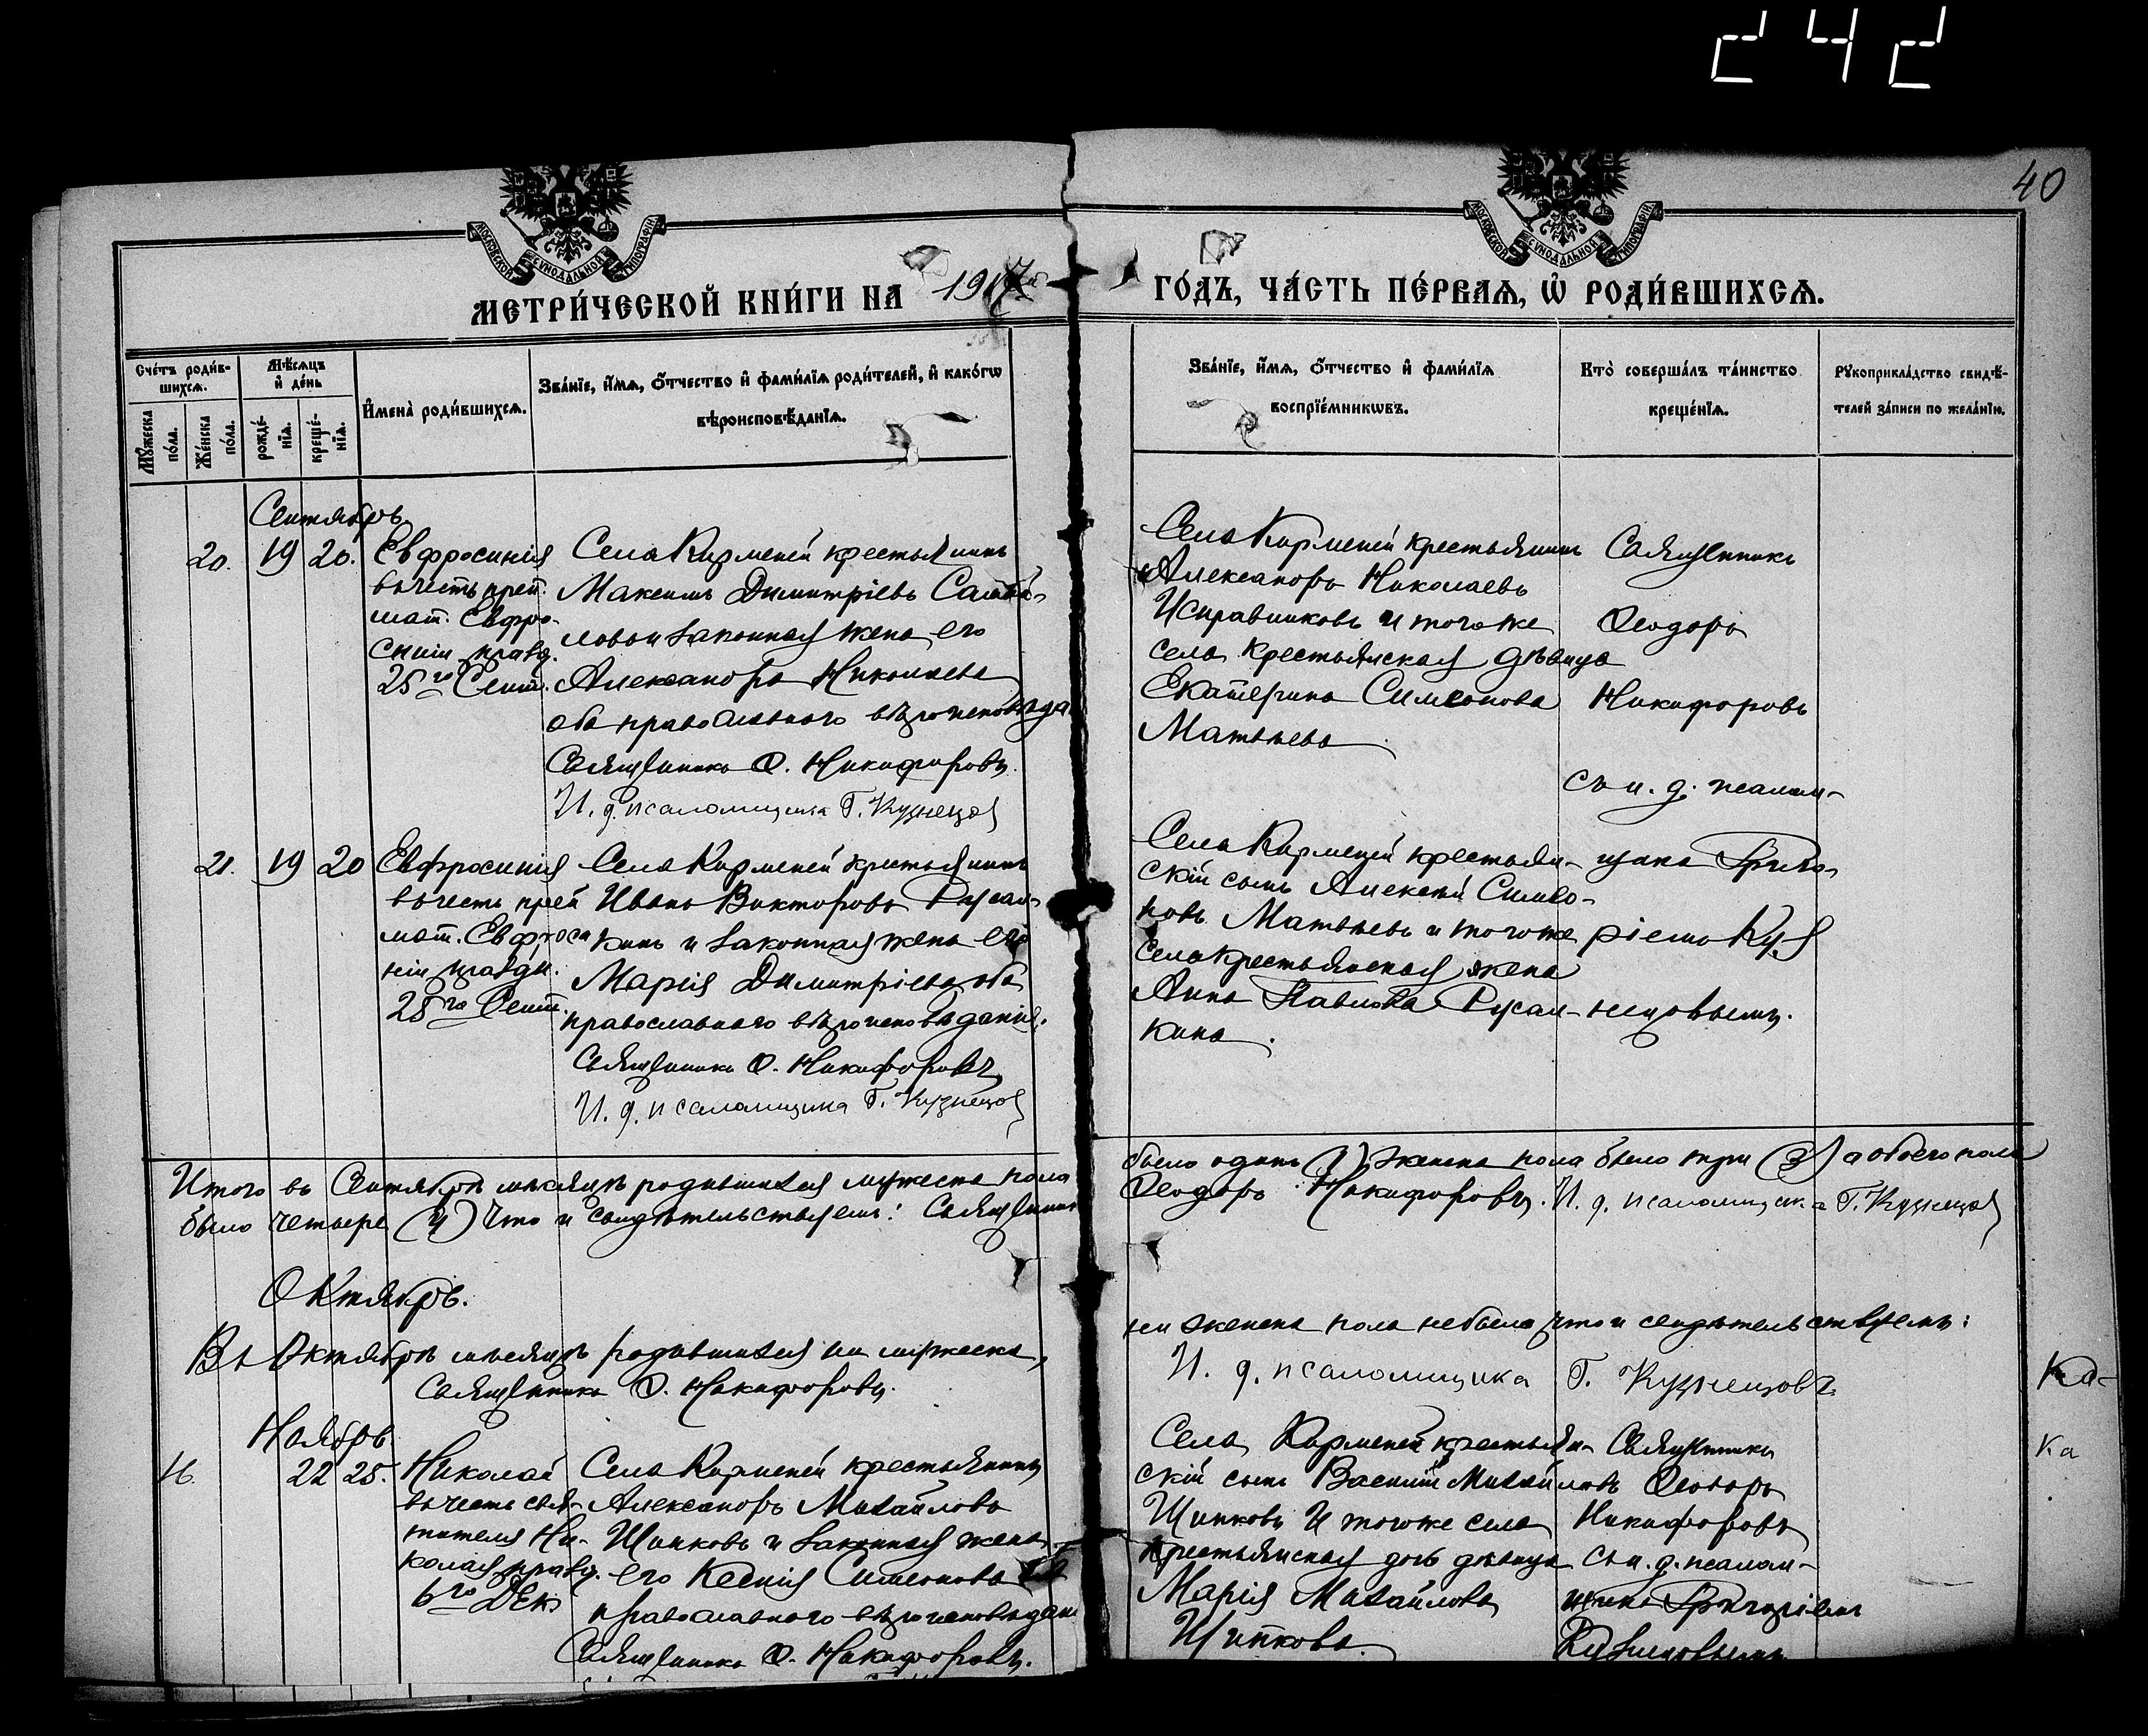 242
40
МОСКОВСКОЙ СѴНОДАЛЬНОЙ ТИПОГРАФІИ
МОСКОВСКОЙ СѴНОДАЛЬНОЙ ТИПОГРАФІИ
МЕТРИ́ЧЕСКОЙ КНИ́ГИ НА 1917й
ГО́ДЪ, ЧА́СТЬ ПЕ́РВАѦ, Ѡ҆ РОДИ́ВШИХСѦ.
Сче́тъ роди́в-
шихсѧ.
Мѣ́сѧцъ
и҆ де́нь
И҆мена̀ роди́вшихсѧ.
Зва́нїе, и҆́мѧ, ѻ҆́тчество и҆ фами́лїѧ роди́телей, и҆ како́гѡ
вѣроисповѣ́данїѧ.
Мꙋ́жеска по́ла.
Же́нска по́ла.
рожде́-
нїѧ.
креще́-
нїѧ.
Зва́нїе, и҆́мѧ, ѻ҆́тчество и҆ фами́лїѧ
воспрїе́мникѡвъ.
Кто̀ соверша́лъ та́инство
креще́нїѧ.
Рꙋкоприкла́дство свидѣ́-
телей за́писи по жела́нїю.
Сентябрь
20. 19 20. Евфросинія
въ честь преп.
мат. Евфро-
синіи празд.
25го Сент.
Села Кирменей крестьянинъ
Максимъ Димитріевъ
законная жена его
Александра Николаева
оба православного вѣроисповѣда
Священникъ Ѳ. Никифоровъ.
И. д. псаломщика Г. Кузнецов
Села Кирменей крестьянинъ
Александръ Николаевъ
Исправниковъ и того же
села крестьянская дѣвица
Екатерина Симеонова
Матвѣева.
Священникъ
Ѳеодоръ
Никифоровъ
съ и. д. псалом-
21. 19 20 Евфросинія
въ честь преп
мат. Евфроси
ніи празди.
25го Сент.
Села Кирменей крестьянинъ
Иванъ Викторовъ Русал-
кинъ и законная жена его
Марія Димитріева оба
православнаго вѣроисповѣданія.
Священникъ Ѳ. Никифоровъ
И. д. псаломщика Г. Кузнецов
Села Кирменей крестьян-
скій сынъ Алексѣй Симео-
новъ Матвѣевъ и того же
села крестьянская жена
Анна Павлова Русал-
кина.
щика Григо-
ріемъ Куз
нецовымъ.
Итого въ Сентябрѣ мѣсяцѣ родившихся мужеска пола
было одинъ (1), женска пола было три (3) а обоего пола
было четыре (4) Что и свидѣтельствуемъ: Священник
Ѳеодоръ Никифоровъ. И. д. псаломщика Г. Кузнецов
Октябрь.
Въ Октябрѣ мѣсяцѣ родившихся ни мужеска,
ни женска пола небыло что и свидѣтельствуемъ:
Священникъ Ѳ. Никифоровъ.
И. д. псаломщика Г. Кузнецовъ
Ка-
ка
Ноябрь
16. 22 25. Николай
въ честь свя-
тителя Ни-
колая празд.
6го Дек
Села Кирменей крестьянинъ
Александръ Михайловъ
Шипковъ и законная жена
его Ксенія Симеонова
православного вѣроисповѣдані
Священникъ Ѳ. Никифоровъ.
Села Кирменей крестьян-
скій сынъ Василій Михайловъ
Шипковъ и того же села
крестьянская дочь дѣвица
Марія Михайлова
Шипкова.
Священникъ
Ѳеодоръ
Никифоровъ
съ и. д. псалом-
щика Григоріемъ
Кузнецовымъ